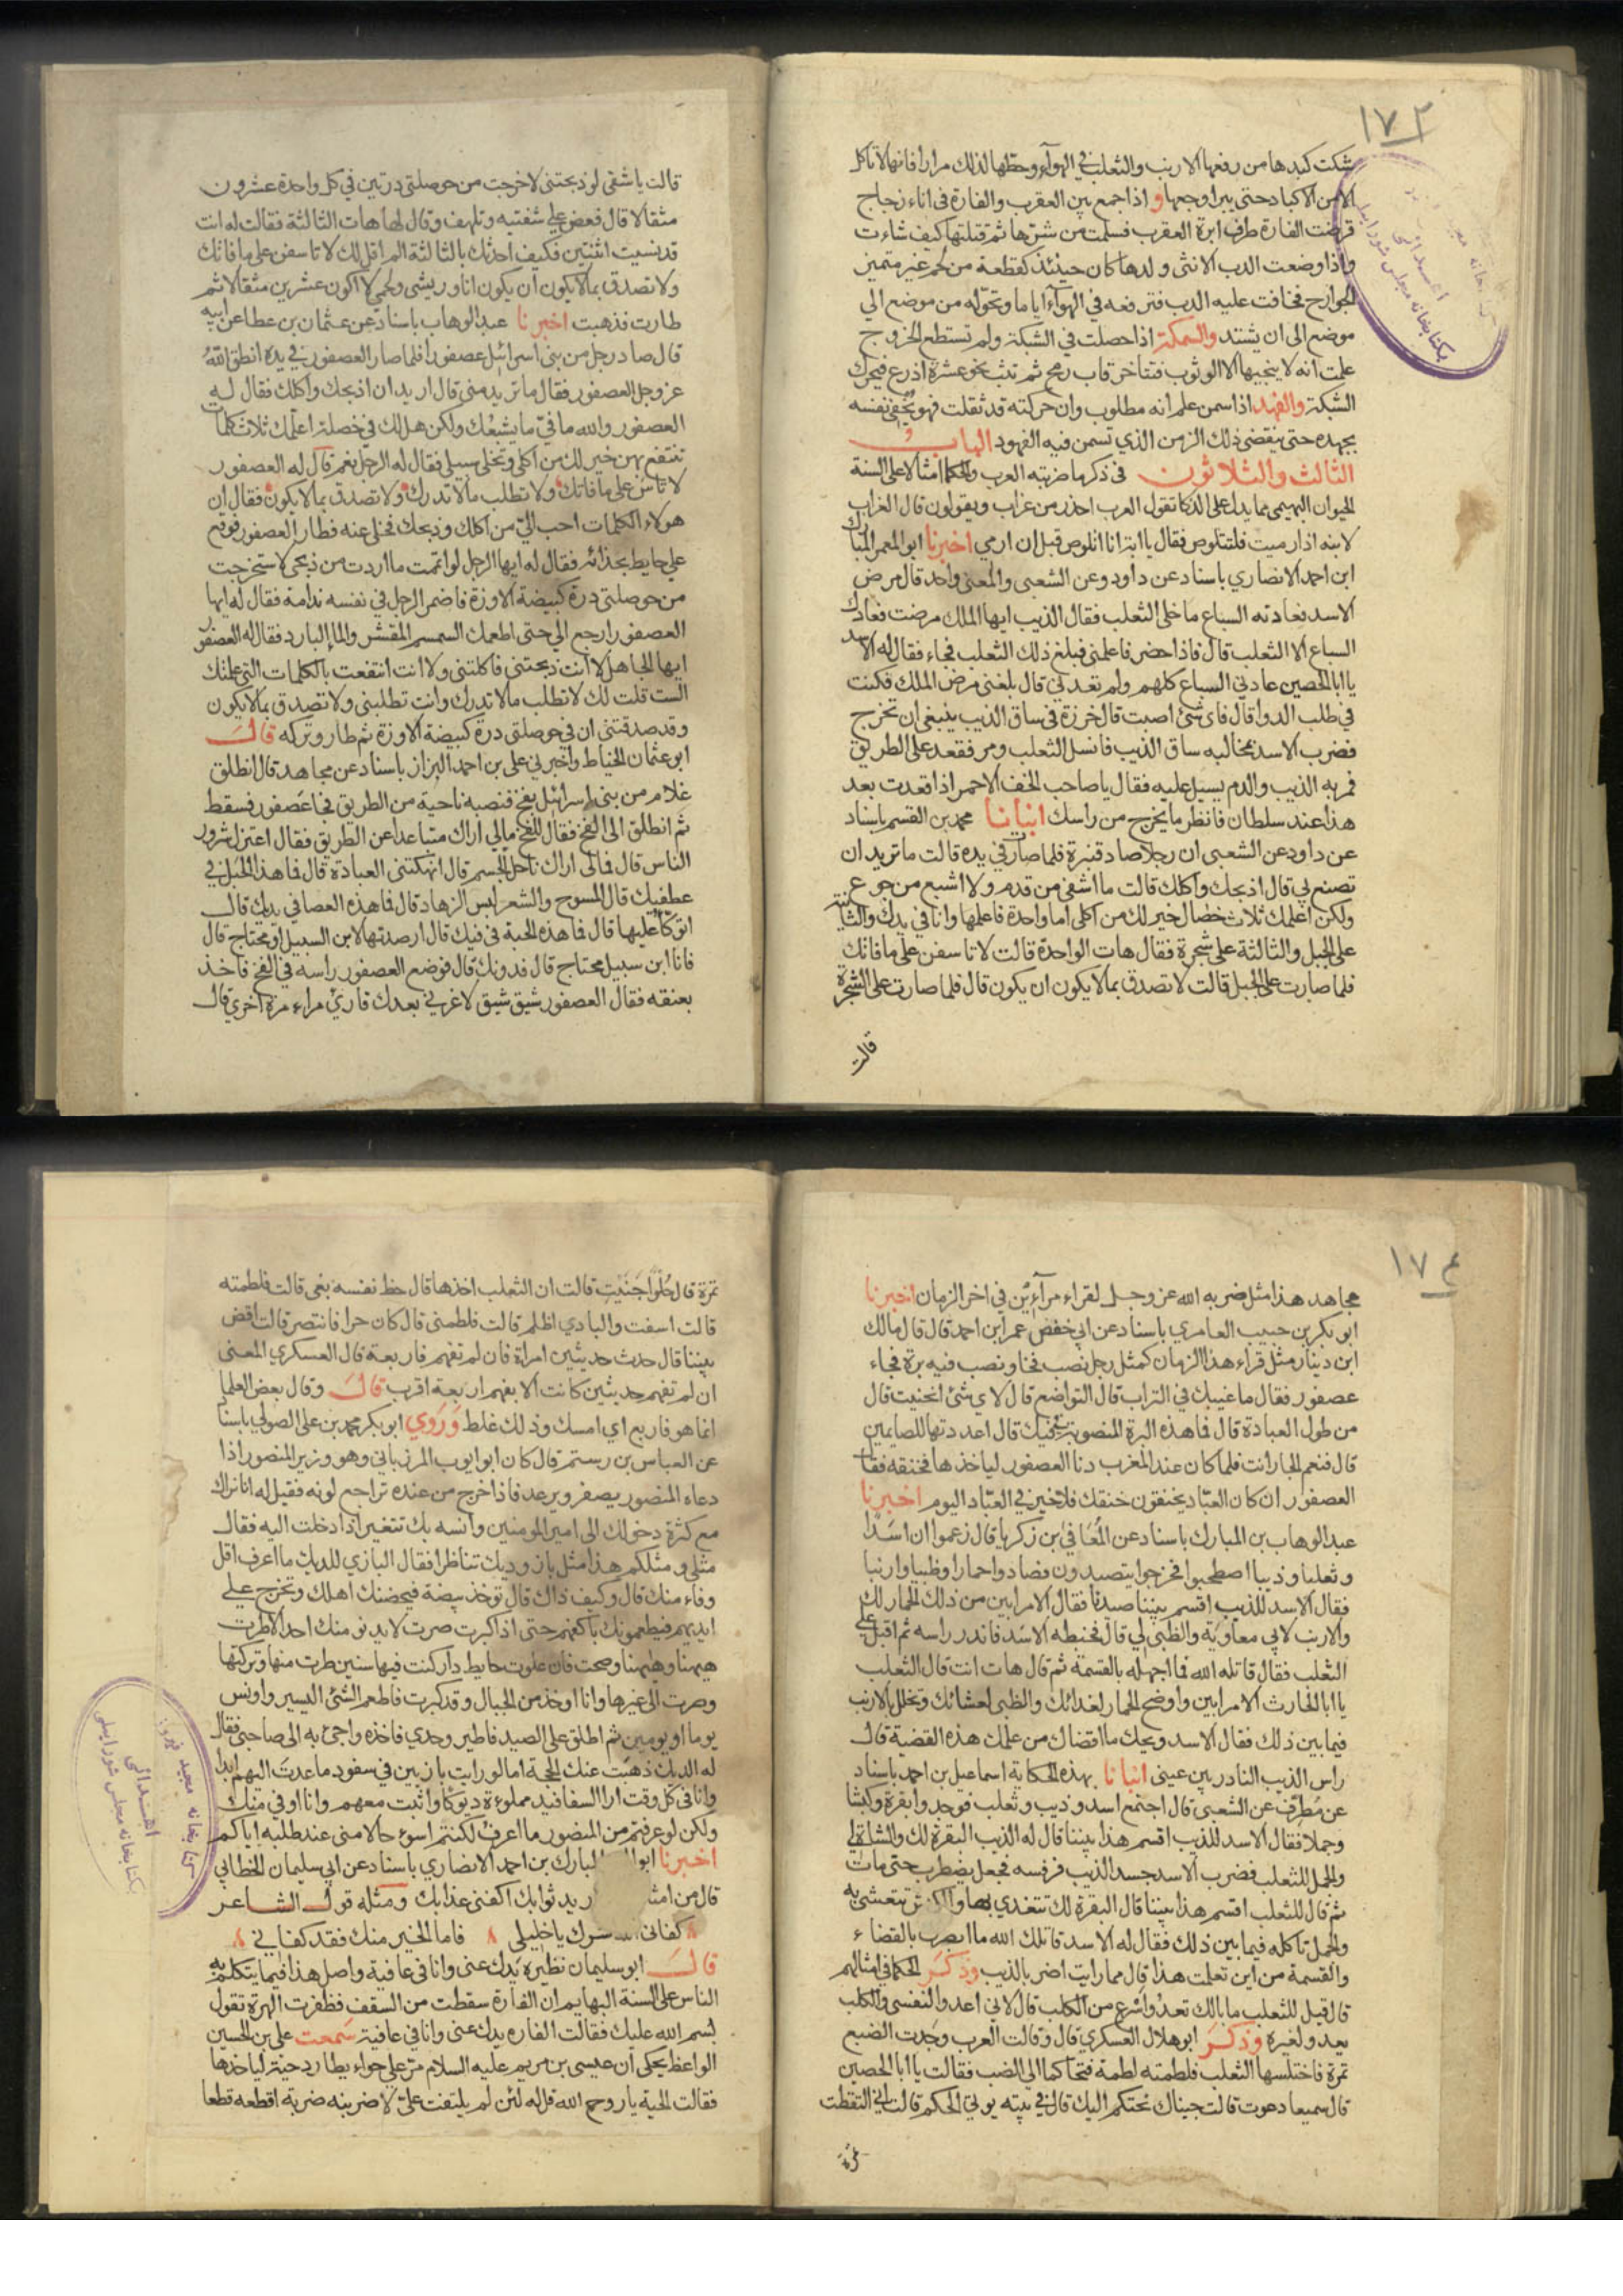 ١٧٢
شكت كبدها من رفعها الارنب والثعلب في الهوآء وحطها لذلك مرارا فانها لا تاكل
الا من الاكباد حتى يبرا وجعها و اذا جمع بين العقرب والفارة في اناء زجاج
قرضت الفارة طرف ابرة العقرب فسلمت من شرها ثم قتلتها كيف شاءت
واذا وضعت الدب الانثى ولدها كان حينئذ كقطعة من لحم غير متميز
الجوارح فخافت عليه الدب فترفعه في الهوآء اياما وتحوله من موضع الى
موضع الى ان يشتد والسمكة اذا حصلت في الشبكة ولم تستطع الخروج
علمت انه لا ينجيها الا الوثوب فتتأخر قاب رمح ثم تثب نحو عشرة اذرع فيخرق
الشبكة والفهد اذا سمن علم انه مطلوب وان حركته قد ثقلت فهو يخفي نفسه
بجهده حتى ينقضي ذلك الزمن الذي تسمن فيه الفهود الباب
الثالث والثلاثون في ذكر ما ضربته العرب والحكما امثالا على السنة
الحيوان البهيمي مما يدل على الذكا تقول العرب احذر من غراب ويقولون قال الغراب
لابنه اذا رميت فلتتلوص فقال يا ابة انا اتلوص قبل ان ارمي اخبرنا ابو المعمر المبارك
ابن احمد الانصاري باسناد عن داود وعن الشعبي والمعنى واحد قال مرض
الاسد فعادته السباع ما خلى الثعلب فقال الذيب ايها الملك مرضت فعادك
السباع الا الثعلب قال فاذا حضر فاعلمني فبلغ ذلك الثعلب فجاء فقال له الاسد
يا ابا الحصين عادني السباع كلهم ولم تعدني قال بلغني مرض الملك فكنت
في طلب الدوا قال فاي شئ اصبت قال خرزة في ساق الذيب ينبغي ان تخرج
فضرب الاسد مخالبه ساق الذيب فانسل الثعلب ومر فقعد على الطريق
فمر به الذيب والدم يسيل عليه فقال يا صاحب الخف الاحمر اذا قعدت بعد
هذا عند سلطان فانظر ما يخرج من راسك انبانا محمد بن القسم باسناد
عن داود عن الشعبي ان رجلا صاد قنبرة فلما صارت في يده قالت ما تريد ان
تصنع بي قال اذبحك واكلك قالت ما اشفي من قدم ولا اشبع من جوع
ولكن اعلمك ثلاث خصال خير لك من اكلي اما واحدة فاعلمها وانا في يدك والثانية
على الجبل والثالثة على شجرة فقال هات الواحدة قالت لا تاسفن على ما فاتك
فلما صارت على الجبل قالت لا تصدق بما لا يكون ان يكون قال فلما صارت على الشجرة
قالت
قالت يا شقي لو ذبحتني لاخرجت من حوصلتي درتين في كل واحدة عشرون
مثقالا قال فعض على شفتيه وتلهف وقال لها هات الثالثة فقالت له انت
قد نسيت اثنتين فكيف احدثك بالثالثة الم اقل لك لا تاسفن على ما فاتك
ولا تصدق بما لا يكون ان يكون انا وريشي ولحمي لا اكون عشرين مثقالا ثم
طارت فذهبت اخبرنا عبد الوهاب باسناد عن عثمان بن عطا عن ابيه
قال صاد رجل من بني اسرائيل عصفورا فلما صار العصفور في يده انطق الله
عز وجل العصفور فقال ما تريد مني قال اريد ان اذبحك واكلك فقال له
العصفور والله ما فيّ ما يشبعك ولكن هل لك في خصلة اعلمك ثلاث كلمات
تنتفع بهن خير لك من اكلي وتخلي سبيلي فقال له الرجل نعم قال له العصفور
لا تاس على ما فاتك ولا تطلب ما لا تدرك ولا تصدق بما لا يكون فقال ان
هولاء الكلمات احب اليّ من اكلك وذبحك فخلى عنه فطار العصفور فوقع
على حايط بحذائه فقال له ايها الرجل لو اتممت ما اردت من ذبحي لاستخرجت
من حوصلتي درة كبيضة الاوزة فاضمر الرجل في نفسه ندامة فقال له ايها
العصفور ارجع الي حتى اطعمك السمسم المقشر والما البارد فقال له العصفور
ايها الجاهل لا انت ذبحتني فاكلتني ولا انت انتفعت بالكلمات التي علمتك
الست قلت لك لا تطلب ما لا تدرك وانت تطلبني ولا تصدق بما لا يكون
وقد صدقتني ان في حوصلتي درة كبيضة الاوزة ثم طار وتركه قال
ابو عثمان الخياط واخبرني علي بن احمد البزاز باسناد عن مجاهد قال انطلق
غلام من بني اسرائيل بفخ فنصبه ناحية من الطريق فجا عصفور فسقط
ثم انطلق الى الفخ فقال للفخ مالي اراك متباعدا عن الطريق فقال اعتزل شرور
الناس قال فمالي اراك ناحل الجسم قال انهكتني العبادة قال فما هذا الحبل في
عطفيك قال المسوح والشعر لبس الزهاد قال فما هذه العصا في يدك قال
اتوكأ عليها قال فما هذه الحبة في فيك قال ارصدتها لابن السبيل او محتاج قال
فانا ابن سبيل محتاج قال فدونك قال فوضع العصفور راسه في الفخ فاخذ
بعنقه فقال العصفور شيق شيق لا غرني بعدك قارئ مراء مرة اخرى قال
١٧٤
مجاهد هذا مثل ضربه الله عز وجل لقراء مرآئين في اخر الزمان اخبرنا
ابو بكر بن حبيب العامري باسناد عن ابي حفص عمر ابن احمد قال قال مالك
ابن دينار مثل قراء هذا الزمان كمثل رجل نصب فخا ونصب فيه برة فجاء
عصفور فقال ما غيبك في التراب قال التواضع قال لاي شئ انحنيت قال
من طول العبادة قال فما هذه البرة المنصوبة فيك قال اعددتها للصايمين
قال فنعم الجار انت فلما كان عند المغرب دنا العصفور لياخذها فخنقه فقال
العصفور ان كان العبّاد يخنقون خنقك فلا خير في العبّاد اليوم اخبرنا
عبد الوهاب بن المبارك باسناد عن المُعَافى بن زكريا قال زعموا ان اسَدًا
وثعلبا وذيبا اصطحبوا فخرجوا يتصيدون فصادوا حمارا وظبيا وارنبا
فقال الاسد للذيب اقسم بيننا صيدنا فقال الامر ابين من ذلك الحمار لك
والارنب لابي معاوية والظبي لي قال فخبطه الاسد فاندر راسه ثم اقبل على
الثعلب فقال قاتله الله فما اجهله بالقسمة ثم قال هات انت قال الثعلب
يا ابا الحارث الامر ابين واوضح الحمار لغدائك والظبي لعشائك وتخلل بالارنب
فيما بين ذلك فقال الاسد ويحك ما اقضاك من علمك هذه القضية قال
راس الذيب النادر بين عيني انبانا بهذه الحكاية اسماعيل بن احمد باسناد
عن مُطرف عن الشعبي قال اجتمع اسد وذيب وثعلب فوجدوا بقرة وكبشا
وجملا فقال الاسد للذيب اقسم هذا بيننا قال له الذيب البقرة لك والشاة لي
والجمل للثعلب فضرب الاسد جسد الذيب فرفسه فجعل يضطرب حتى مات
ثم قال للثعلب اقسم هذا بيننا قال البقرة لك تتغدي بها والكبش تتعشى به
والجمل تاكله فيما بين ذلك فقال له الاسد قاتلك الله ما ابصرك بالقضاء
والقسمة من اين تعلمت هذا قال مما رايت اضر بالذيب وذكر الحكما في امثالهم
قال قيل للثعلب ما بالك تعدُ واسرع من الكلب قال لاني اعدو النفسي والكلب
يعدو لغيره وذكر ابو هلال العسكري قال وقالت العرب وجدت الضبع
تمرة فاختلسها الثعلب فلطمته لطمة فتحاكما الى الضب فقالت يا ابا الحصين
قال سميعا دعوت قالت جيناك نحتكم اليك قال في بيته يوتى الحكم قالت اني التقطت
تمرة
تمرة قال حُلْوًا جَنَيْتِ قالت ان الثعلب اخذها قال حظ نفسه بغى قالت فلطمته
قالت اسفت والبادي اظلم قالت فلطمني قال كان حرا فانتصر قالت اقض
بيننا قال حدث حديثين امراة فان لم تفهم فاربعة قال العسكري المعنى
ان لم تفهم حديثين كانت الا بفهم اربعة اقرب قال وقال بعض العلما
انما هو فاربع اي امسك وذلك غلط وَرَوي ابو بكر محمد بن علي الصولي باسناد
عن العباس بن رستم قال كان ابو ايوب المرزباني وهو وزير المنصور اذا
دعاه المنصور يصفر ويرعد فاذا خرج من عنده تراجع لونه فقيل له انا نراك
مع كثرة دخولك الى امير المومنين وانسه بك تتغير اذا دخلت اليه فقال
مثلي ومثلكم هذا مثل باز وديك تناظرا فقال البازي للديك ما اعرف اقل
وفاء منك قال وكيف ذاك قال توخذ بيضة فيحضنك اهلك وتخرج على
ايديهم فيطعمونك باكفهم حتى اذا كبرت صرت لا يدنو منك احد الا طرت
هيهنا وهيهنا وصحت فان علوت حايط دار كنت فيها سنين طرت منها وتركتها
وصرت الى غيرها وانا اوخذ من الجبال وقد كبرت فاطعم الشئ اليسير واونس
يوما او يومين ثم اطلق على الصيد فاطير وحدي فاخذه واجئ به الى صاحبي فقال
له الديك ذهبت عنك الحجة اما لو رايت بازيين في سفود ما عدت اليهم ابدا
وانا في كل وقت ارا السفافيد مملوءة ديوكا واثبت معهم وانا اوفي منك
ولكن لو عرفتم من المنصور ما اعرف لكنتم اسوء حالا مني عند طلبه اياكم
اخبرنا ابو المبارك بن احمد الانصاري باسناد عن ابي سليمان الخطابي
قال من امثا ريد ثوابك اكفني عذابك ومثله قول الشاعر
كفاني شرك يا خليلي فاما الخير منك فقد كفاني
قال ابو سليمان نظيره يدك عني وانا في عافية واصل هذا فيما يتكلم به
الناس على السنة البهايم ان الفارة سقطت من السقف فظفرت الهرة تقول
بسم الله عليك فقالت الفاره يدك عني وانا في عافية سمعت علي بن الحسين
الواعظ يحكي ان عيسى بن مريم عليه السلام مرّ على حواء يطارد حية لياخذها
فقالت الحية يا روح الله قل له لئن لم يلتفت عنّي لاضربنه ضربة اقطعه قطعا